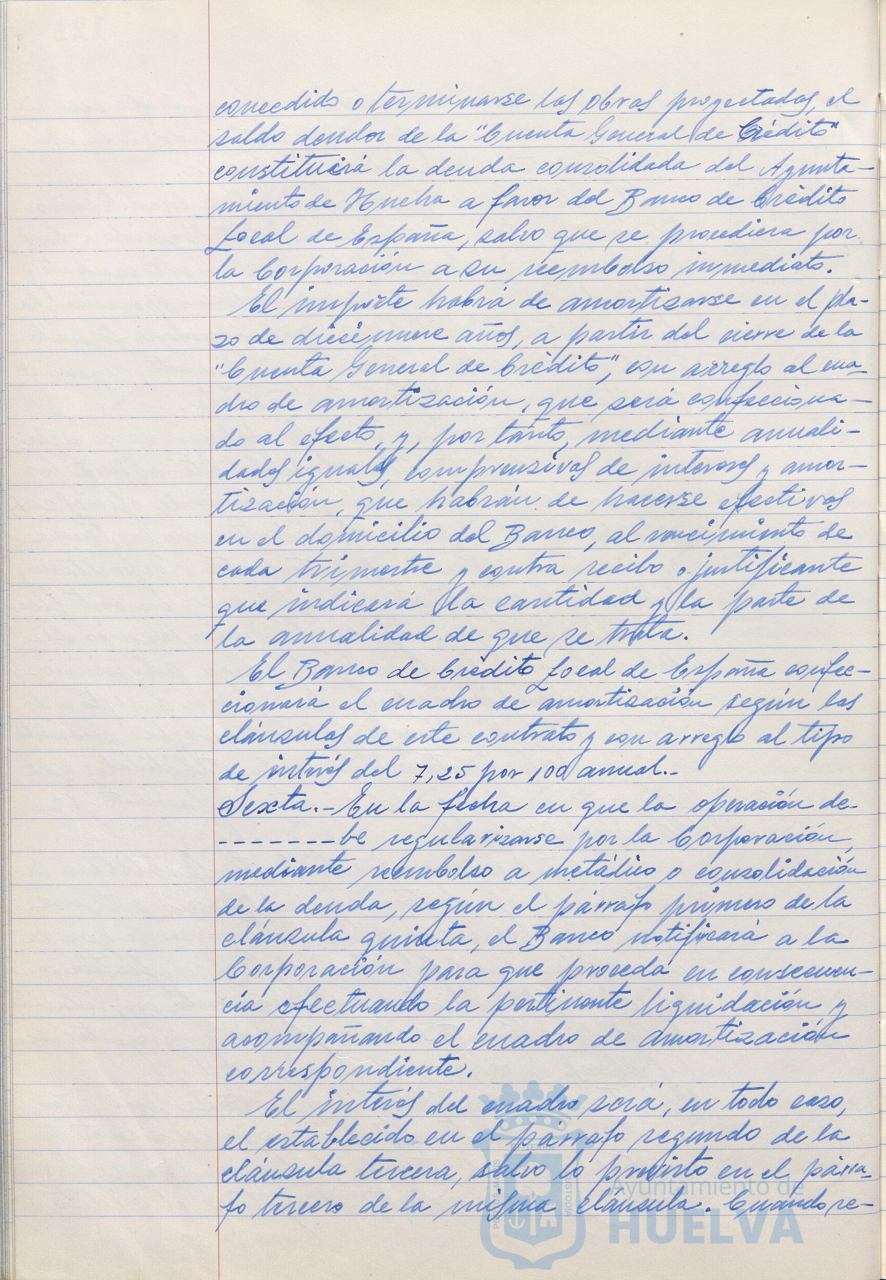 concedido o terminarse las obras proyectadas, el
saldo deudor de la "Cuenta General de Crédito"
constituirá la deuda consolidada del Ayunta-
miento de Huelva a favor del Banco de Crédito
Local de España, salvo que se procediera por
la Corporación a su reembolso inmediato.
El importe habrá de amortizarse en el pla-
zo de diecinueve años, a partir del cierre de la
"Cuenta General de Crédito", con arreglo al cua-
dro de amortización, que será confecciona-
do al efecto, y, por tanto, mediante anuali-
dades iguales, comprensivas de intereses y amor-
tización, que habrán de hacerse efectivas
en el domicilio del Banco, al vencimiento de
cada trimestre y contra recibo o justificante
que indicará la cantidad y la parte de
la anualidad de que se trata.
El Banco de Crédito Local de España confec-
cionará el cuadro de amortización según las
cláusulas de este contrato y con arreglo al tipo
de interés del 7,25 por 100 anual.-
Sexta.- En la fecha en que la operación de-
-------be regularizarse por la Corporación,
mediante reembolso a metálico o consolidación
de la deuda, según el párrafo primero de la
cláusula quinta, el Banco notificará a la
Corporación para que proceda en consecuen-
cia efectuando la pertinente liquidación y
acompañando el cuadro de amortización
correspondiente.
El interés del cuadro será, en todo caso,
el establecido en el párrafo segundo de la
cláusula tercera, salvo lo previsto en el párra-
fo tercero de la misma cláusula. Cuando re-
Ayuntamiento de
HUELVA